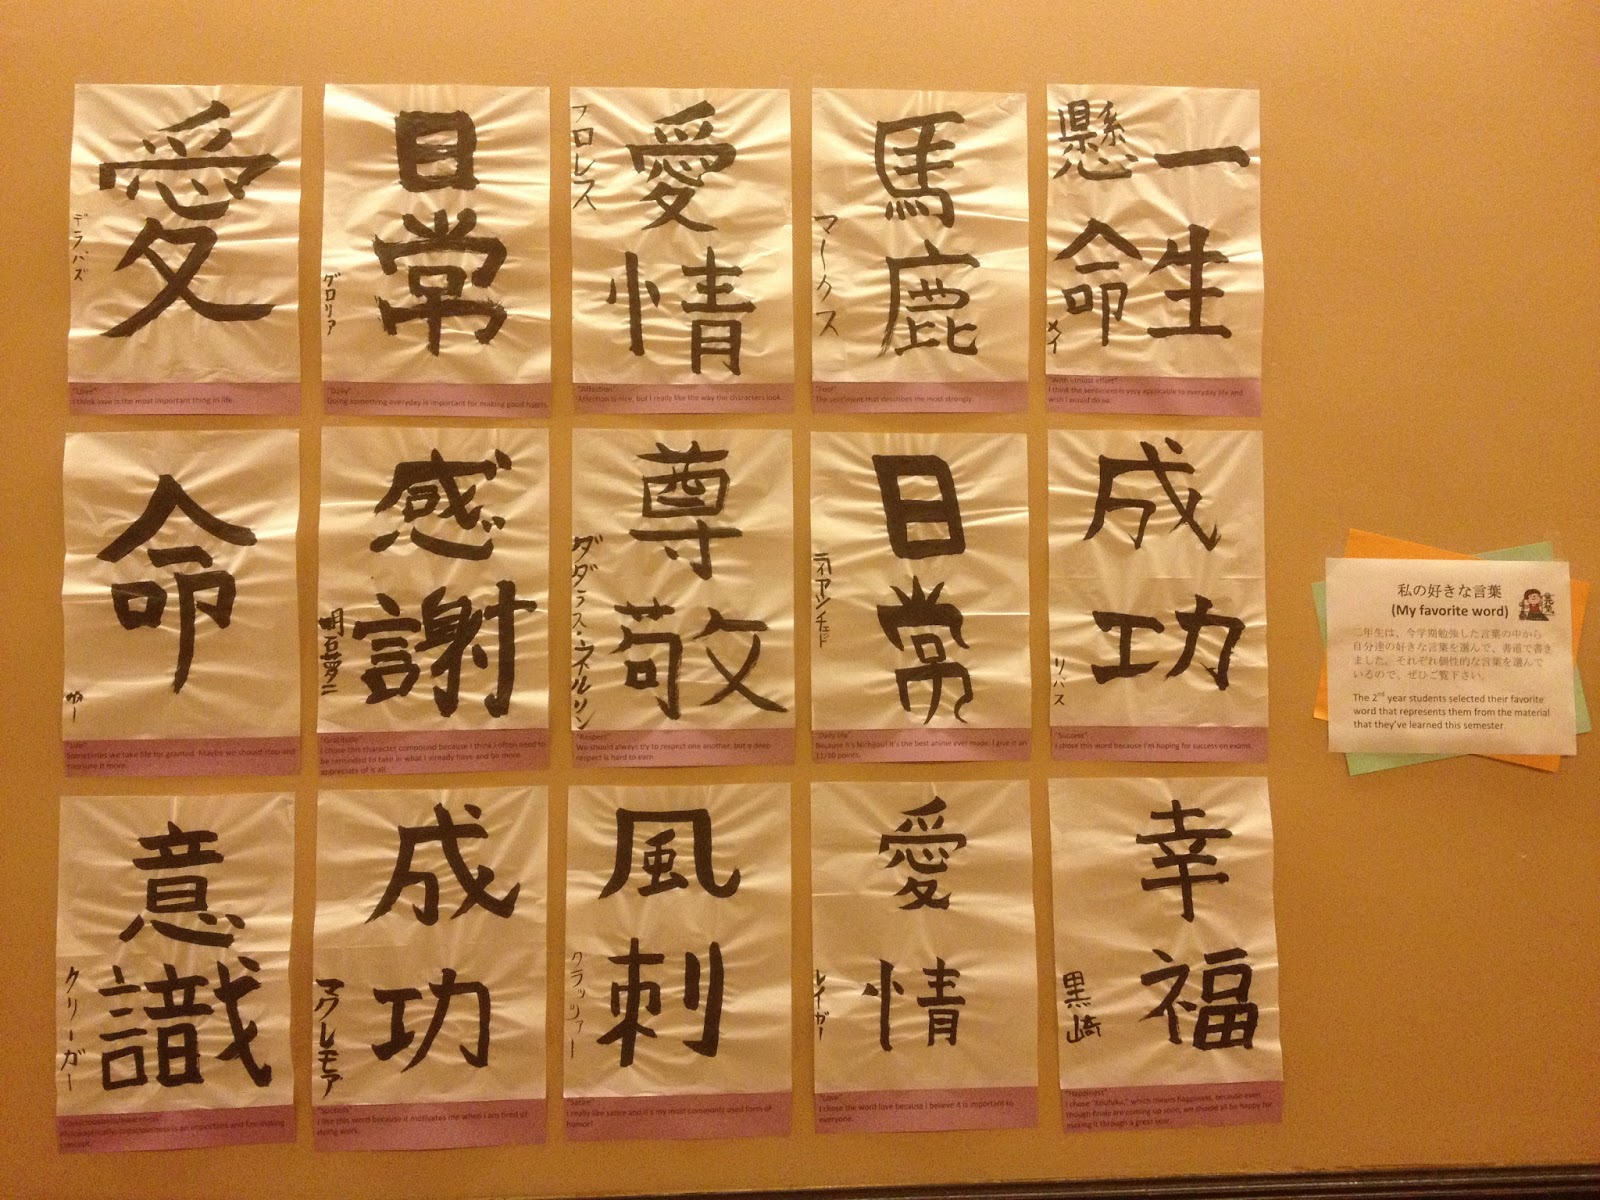 愛
デラバズ
"Love"
I think love is the most important thing in life.
日常
グロリア
Doing something everyday is important for making good habits.
愛情
フロレス
"Affection"
Affection is nice, but I really like the way the characters look.
馬鹿
マークス
"Fool"
The sentiment that describes me most strongly.
一生
懸命
メイ
"With utmost effort"
I think the sentiment is very applicable to everyday life and
wish I would do so.
命
"Life"
Sometimes we take life for granted. Maybe we should stop and
more.
感謝
"Gratitude"
I chose this character compound because I think I often need to
be reminded to take in what I already have and be more
appreciate of it all.
尊敬
ダダラス・ウネルソン
"Respect"
We should always try to respect one another, but a deep
respect is hard to earn.
日常
"Daily life"
Because it's Nichijou! It's the best anime ever made. I give it an
11/10 points.
成功
リバス
"Success"
I chose this word because I'm hoping for success on exams.
意識
クリーガー
"Consciousness/Awareness"
consciousness is an important and
concept.
成功
マクレモア
"Success"
I like this word because it motivates me when I am tired of
doing work.
風刺
クラッツァー
"Satire"
I really like satire and it's my most commonly used form of
humor!
愛情
レイガー
"Love"
I chose the word love because I believe it is important to
everyone.
幸福
黒崎
"Happiness"
I chose "koufuku," which means happiness, because even
though finals are coming up soon, we should all be happy for
making it through a great year.
私の好きな言葉
(My favorite word)
二年生は、今学期勉強した言葉の中から
自分達の好きな言葉を選んで、書道で書き
ました。それぞれ個性的な言葉を選んで
いるので、ぜひご覧下さい。
The 2nd year students selected their favorite
word that represents them from the material
that they've learned this semester.